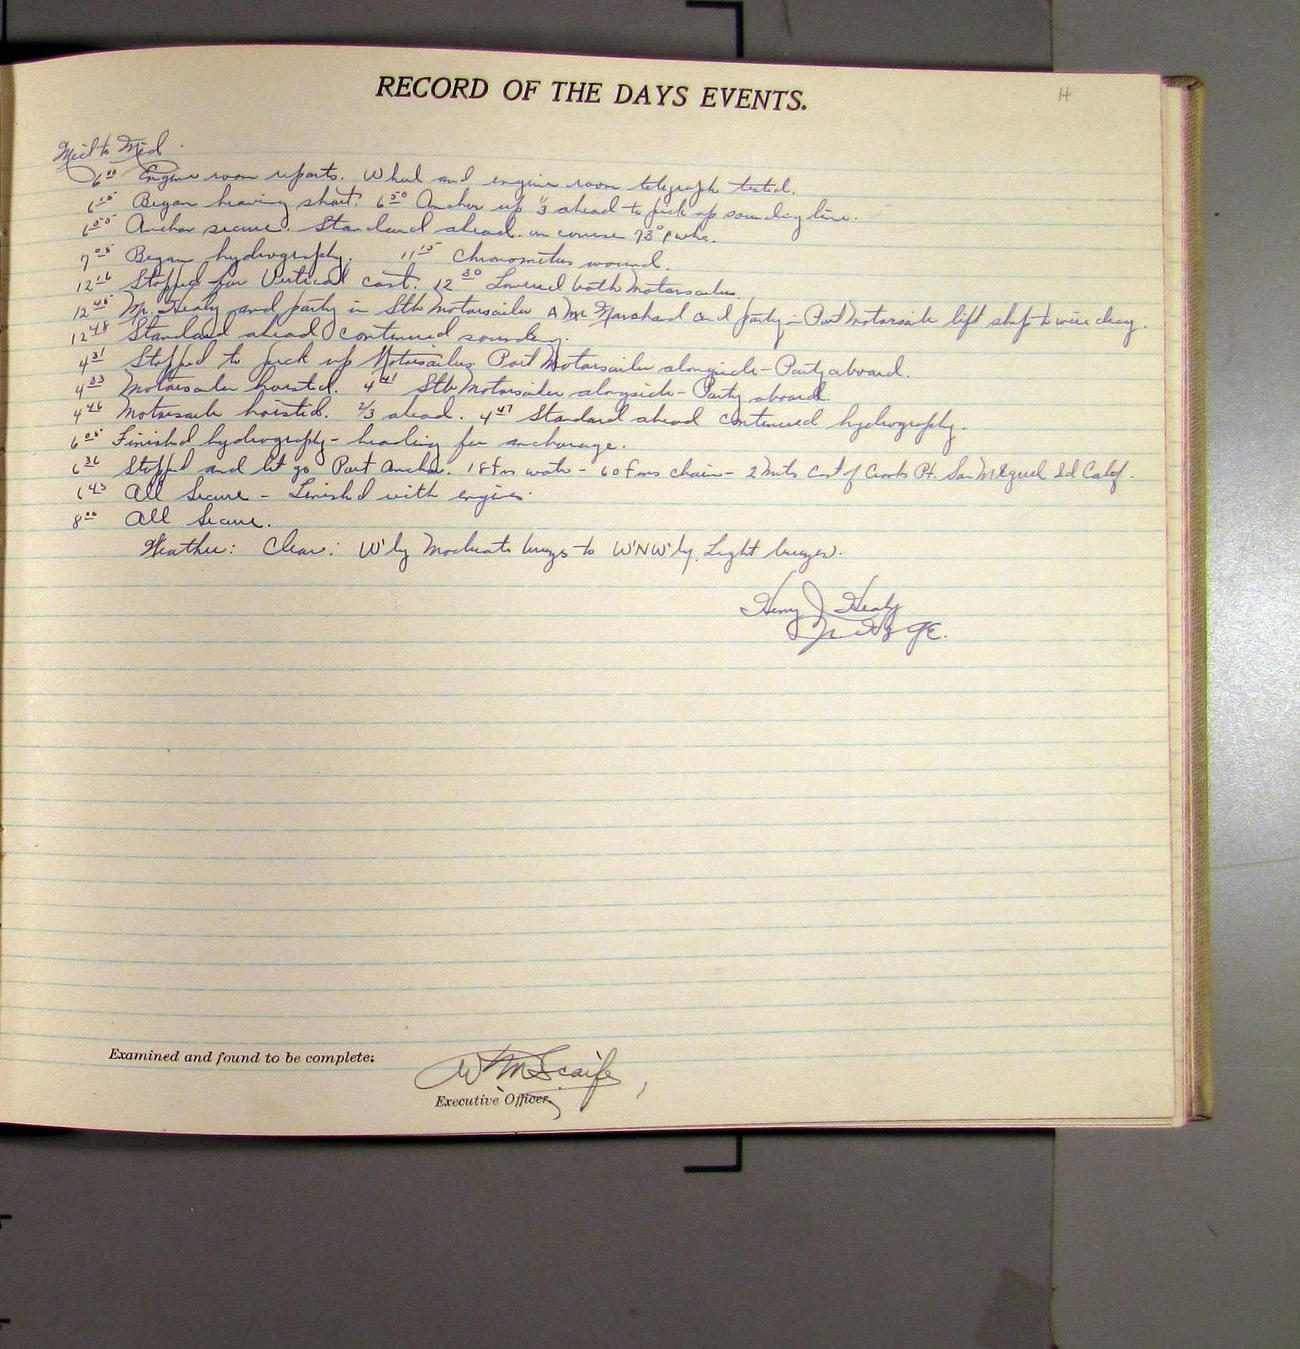 RECORD OF THE DAYS EVENTS.
14
Mid to Mid.
6 00 Engine room reports. Wheel and engine room telegraph tested.
6 15 Began heaving short. 6 50 Anchor up 1/3 ahead to pick up sounding line.
6 55 Anchor secure. Standard ahead. on course 73° pwhc.
7 05 Began hydrography. 11 15 Chronometers wound.
12 26 Stopped for Vertical cast. 12 30 Lowered both Motorsailers.
12 45 Mr. Healy and party in Stb Motorsailer & Mr Marshall and party in Port Motorsailer left ship to wire drag.
12 48 Standard ahead continued sounding.
4 31 Stopped to pick up Motorsailers Port Motorsailer alongside - Party aboard.
4 33 Motorsailer hoisted. 4 41 Stb Motorsailer alongside - Party aboard.
4 46 Motorsailer hoisted. 2/3 ahead. 4 47 Standard ahead continued hydrography.
6 05 Finished hydrography - heading for anchorage.
6 36 Stopped and let go Port Anchor. 18 fms water - 60 fms chain - 2 of Crook Pt. San Miguel Id Calif.
6 43 All Secure - Finished with engines.
8 00 All Secure.
Weather: Clear: W'ly Moderate breezes to WNW'ly, Light breezes.
Henry J. Healy
Jr. H. & G.E.
Examined and found to be complete:
W M Scaife,
Executive Officer.